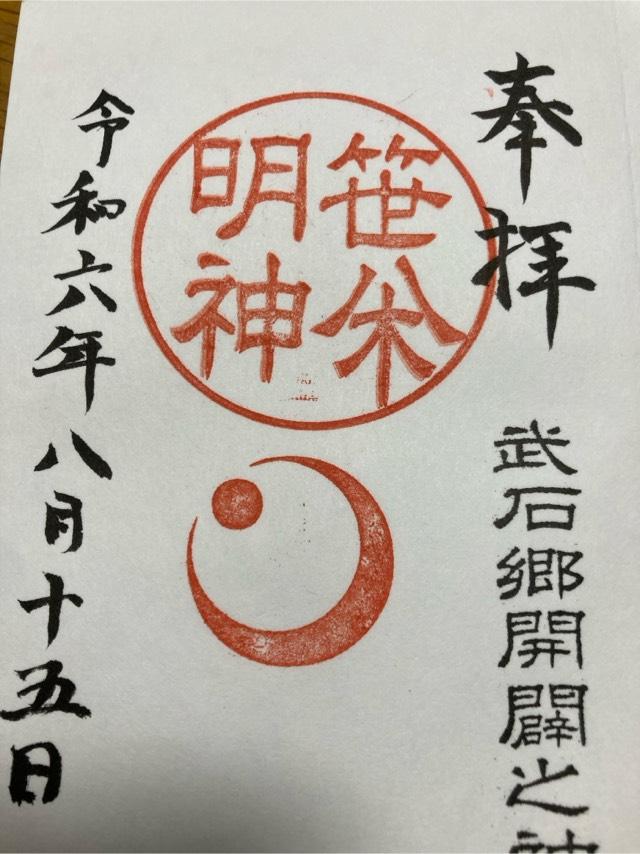 奉拝
武石郷開闢之神
笹
明神
令和六年八月十五日